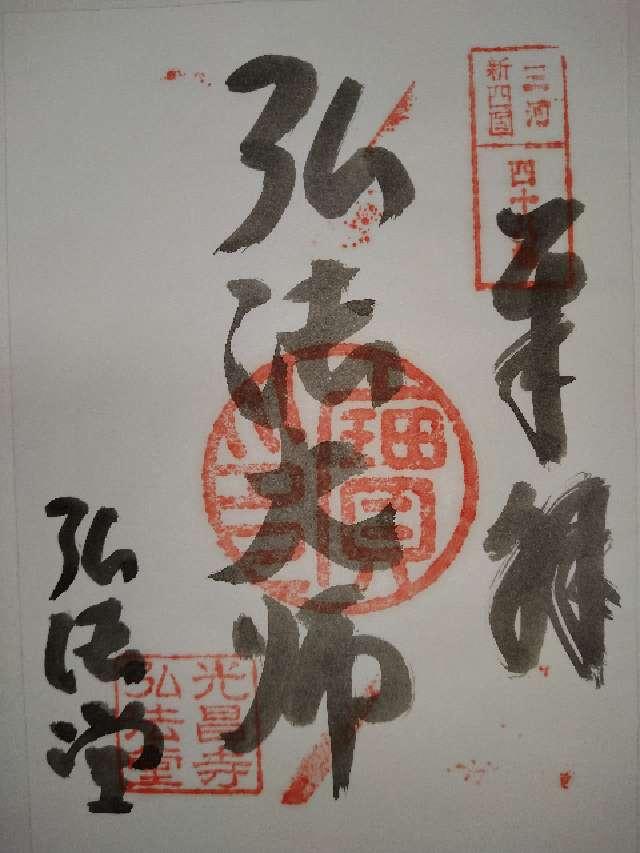 三河
新四国
四十
奉拝
弘法大師
弘法堂
光昌寺
弘法堂